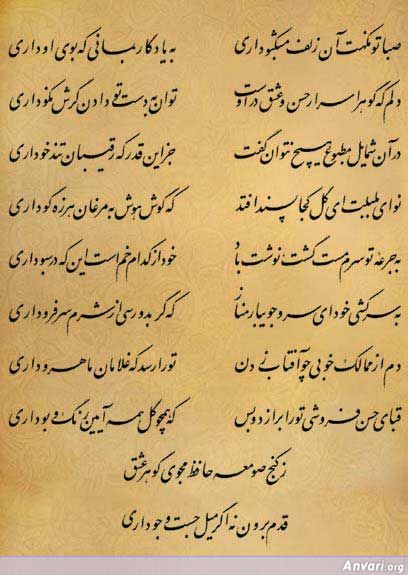 صبا تو نکهت آن زلف مشکبو داری به یادگار بمانی که بوی او داری
دلم که گوهر اسرار حسن و عشق در اوست توان به دست تو دادن گرش نکو داری
در آن شمایل مطبوع هیچ نتوان گفت جز این قدر که رقیبان تندخو داری
نوای بلبلت ای گل کجا پسند افتد که گوش هوش به مرغان هرزه گو داری
به جرعه تو سرم مست گشت نوشت باد خود از کدام خم است این که در سبو داری
به سرکشی خود ای سرو جویبار مناز که گر بدو رسی از شرم سر فرو داری
دم از ممالک خوبی چو آفتاب زدن تو را رسد که غلامان ماهرو داری
قبای حسن فروشی تو را برازد و بس که همچو گل همه آیین رنگ و بو داری
ز کنج صومعه حافظ مجوی گوهر عشق
قدم برون نه اگر میل جست و جو داری
Anvari.org